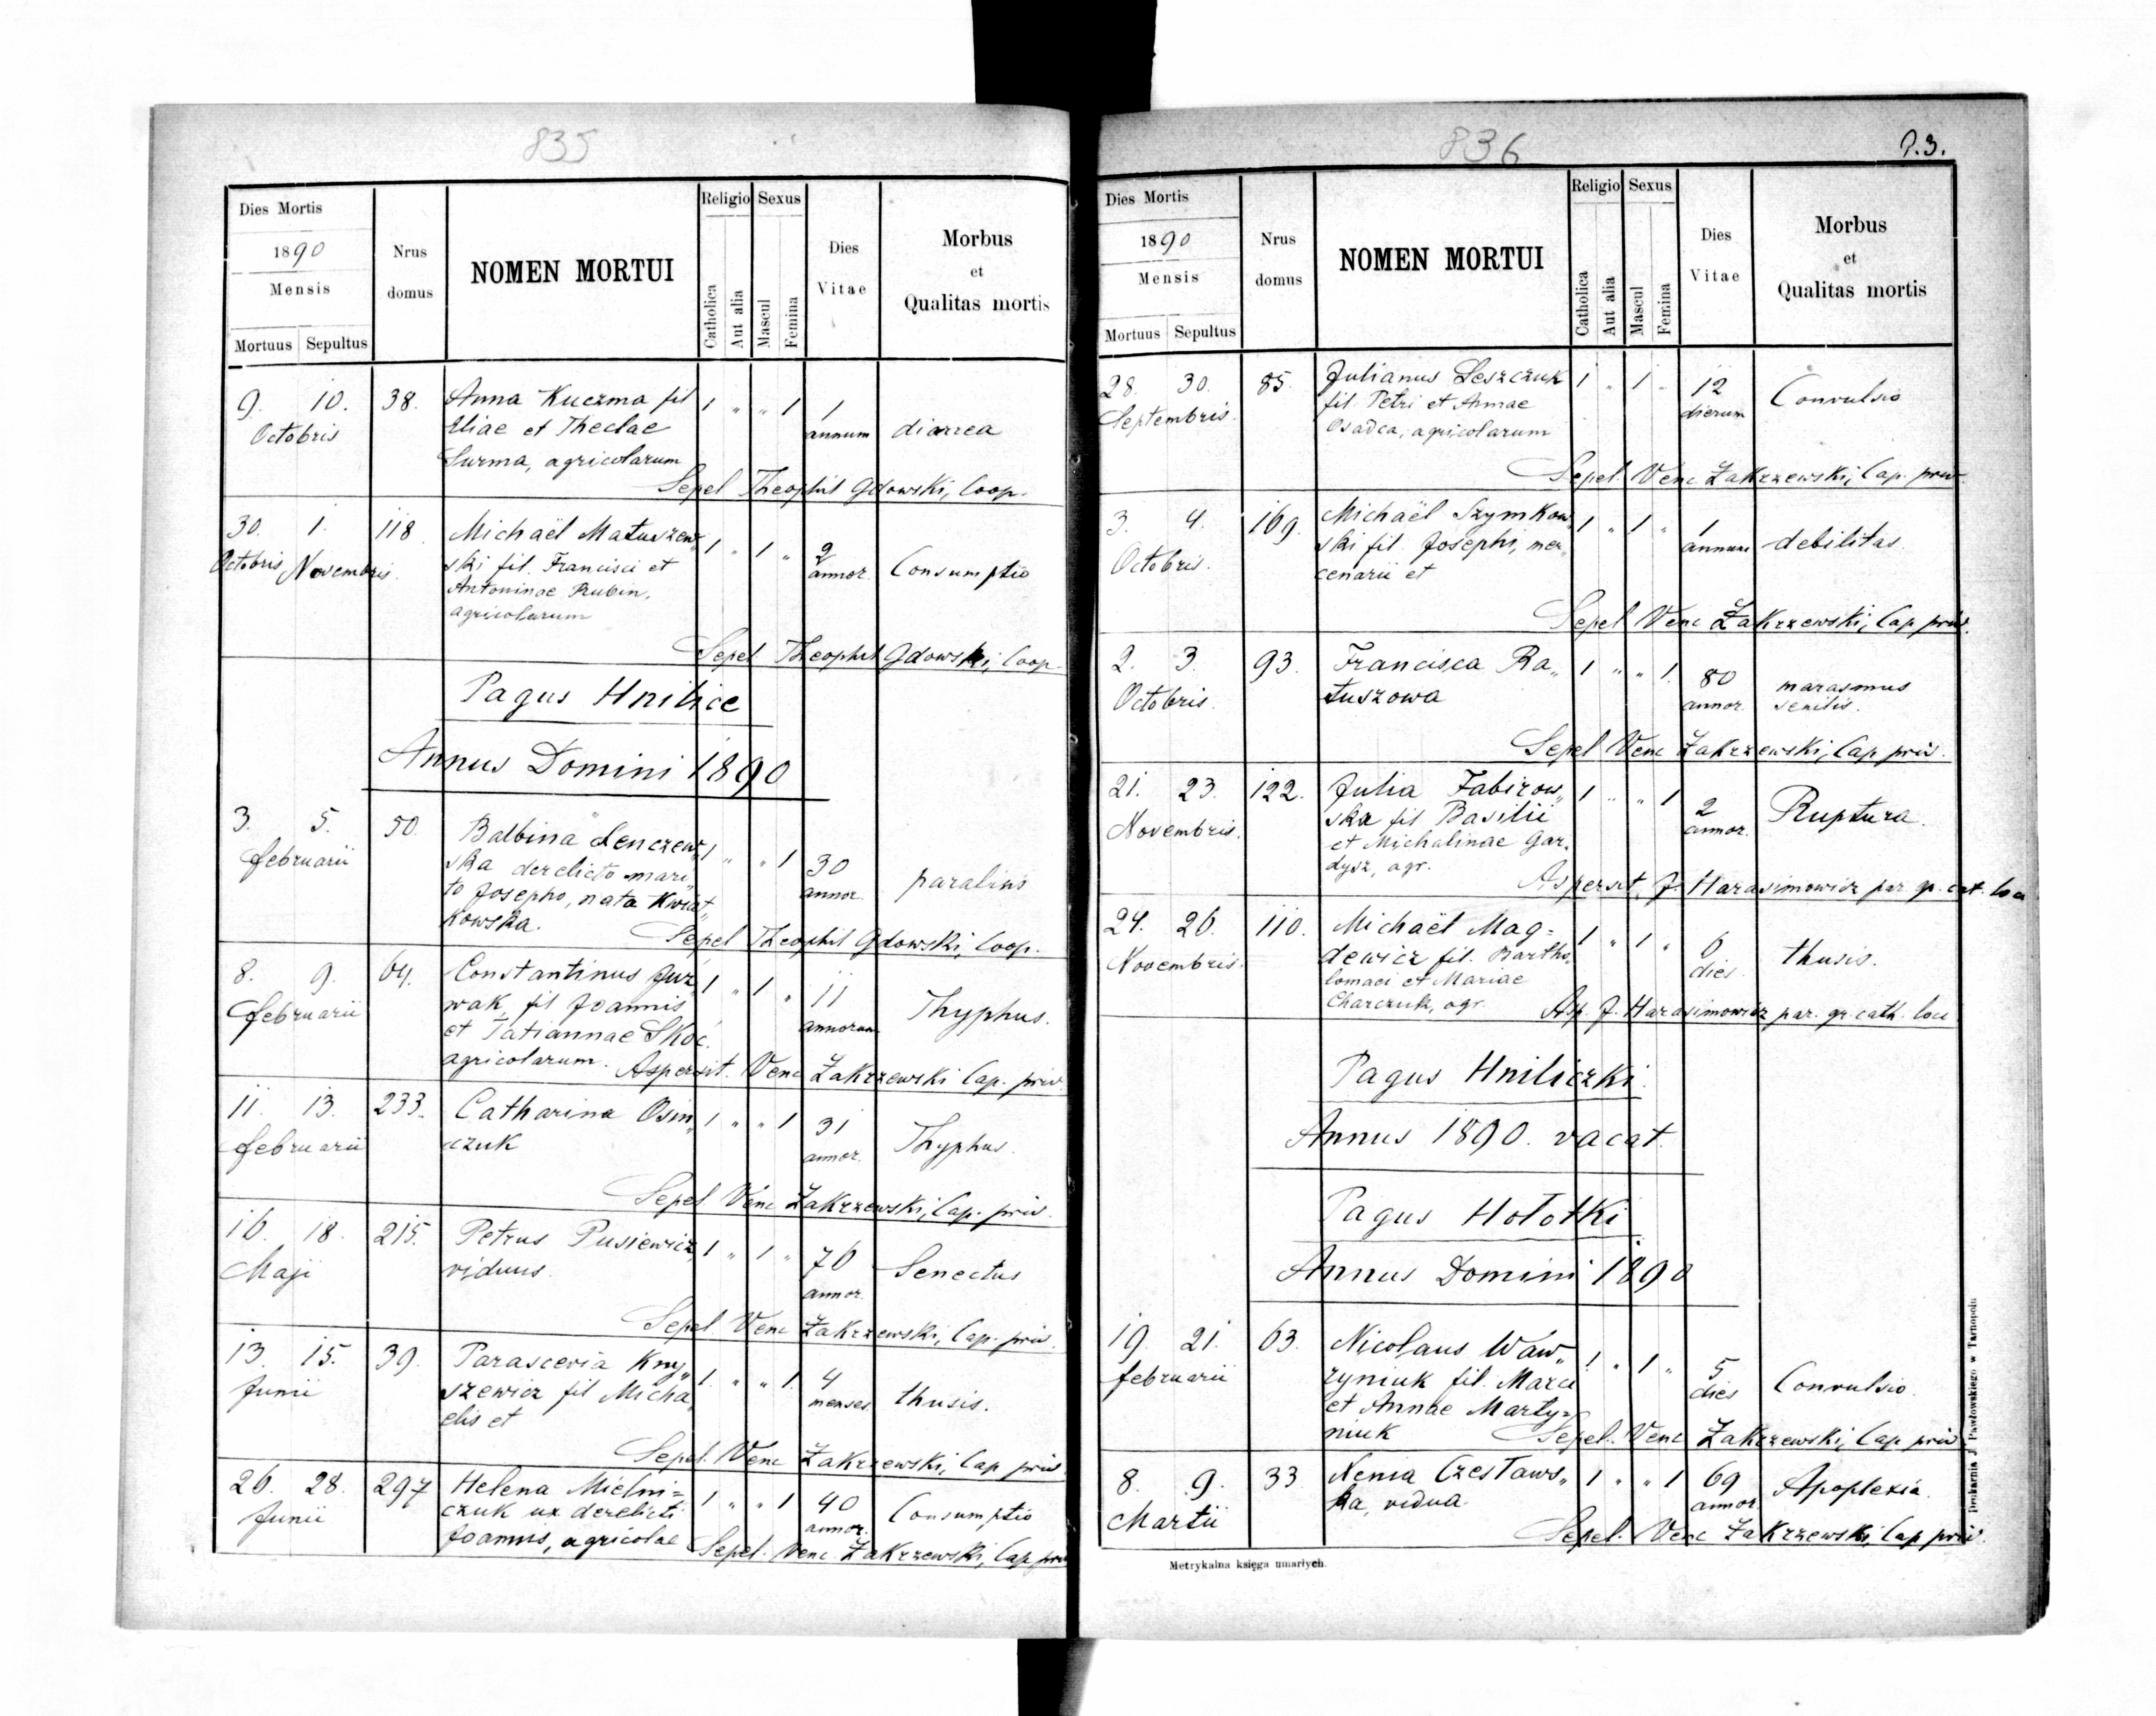 835
Dies Mortis
1890
Mensis
Mortuus Sepultus
Nrus domus
NOMEN MORTUI
Religio
Catholica
Aut alia
Sexus
Mascul
Femina
Dies Vitae
Morbus
et
Qualitas mortis
9. 10. 38. Anna Kuczma fil 1 " " 1 1
Octobris Eliae et Theclae annum diarrea
Surma, agricolarum
Sepel Theophil Gdowski, Coop.
30. 1. 118. Michaël Matuszew„ 1 " 1 " 2
Octobris Novembris. ski fil. Francisci et annor. Consumptio
Antoninae Rubin,
agricolarum
Sepel Theophil Gdowski, Coop.
Pagus Hnilice
Annus Domini 1890
3. 5. 50. Balbina Lenczew„ 1 " " 1 30
februarii ska derelicto mari„ annor. paralius
to Josepho, nata Kwiat„
kowska.
Sepel Theophil Gdowski, Coop.
8. 9. 64. Constantinus 1 " 1 " 11
februarii wak, fil Joannis annorum Thyphus.
et Tatiannae Skoć.
agricolarum. Aspersit. Venc Zakrzewski Cap. priv.
11. 13. 233. Catharina Osin„ 1 " " 1 31
februarii czuk annor. Thyphus.
Sepel. Venc Zakrzewski, Cap. priv.
16. 18. 215. Petrus Pusiewicz, 1 " 1 " 76
Maji viduus. annor. Senectus
Sepel Venc Zakrzewski, Cap. priv.
13. 15. 39. Parascevia Kny„ 1. " " 1. 4
Junii szewicz fil Micha„ menses thusis.
elis et
Sepel. Venc Zakrzewski, Cap priv
26. 28. 297 Helena Mielni= 1 " " 1 40
Junii czuk ux derelicti annor. Consumptio
Joannis, agricolae
Sepel. Venc Zakrzewski, Cap priv
836
93.
Dies Mortis
1890
Mensis
Mortuus Sepultus
Nrus domus
NOMEN MORTUI
Religio
Catholica
Aut alia
Sexus
Mascul
Femina
Dies Vitae
Morbus
et
Qualitas mortis
28. 30. 85. Julianus Leszczuk 1 " 1 " 12 Convulsio
Septembris. fil. Petri et Annae dierum
Osadca, agricolarum
Sepel. Venc Zakrzewski, Cap. priv.
3. 4. 169. Michaël Szymkow„ 1 " 1 " 1
Octobris. ski fil. Josephi, mer„ annum debilitas.
cenarii et
Sepel Venc Zakrzewski, Cap priv.
2. 3. 93. Francisca Ra„ 1 " " 1. 80 marasmus
Octobris. tuszowa annor. senilis.
Sepel Venc Zakrzewski, Cap priv.
21. 23. 122. Julia Fabirow„ 1 " " 1 2 Ruptura.
Novembris. ska fil Basilii annor.
et Michalinae Gar„
dysz, agr.
Aspersit, J. Harasimowicz par. gr. cat. loci
24. 26. 110. Michaël Mag= 1 " 1 " 6
Novembris. dewicz fil. Bartho„ dies thusis.
lomaei et Mariae
Charczuk, agr. Asp. J. Harasimowicz par. gr. cath. loci
Pagus Hniliczki.
Annus 1890. vacat.
Pagus Hołotki
Annus Domini 1890
19. 21. 63. Nicolaus Waw„ 1 " 1 " 5
februarii rzyniuk fil. Marci dies Convulsio.
et Annae Marty=
niuk Sepel. Venc Zakrzewski, Cap priv
8. 9. 33. Xenia Czesław„ 1 " " 1 69 Apoplexia.
Martii ka, vidua. annor.
Sepel. Venc Zakrzewski, Cap priv.
Metrykalna księga umarłych.
Drukarnia J. Pawłowskiego w Tarnopolu